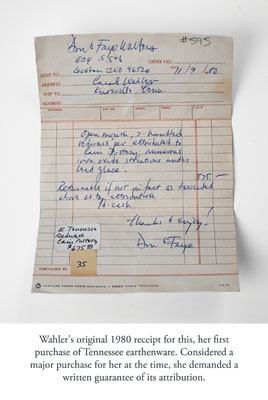 #595
Don & Faye Walters
Goshen IND 46526
ORDER NO. 11/9/80
SOLD TO Carol Wahler
ADDRESS Knoxville, Tenn
SHIP TO
ADDRESS
Open mouth, 2-handled
redware jar attributed to
Cain Pottery, numerous
iron oxide striations under
lead glaze. 575.—
Returnable if not in fact as described
above as by attribution
to cash.
Thanks & Enjoy!
Don & Faye
E. Tennessee
Redware
Cain Pottery
$675.00
PURCHASED BY
35
Wahler's original 1980 receipt for this, her first
purchase of Tennessee earthenware. Considered a
major purchase for her at the time, she demanded a
written guarantee of its attribution.